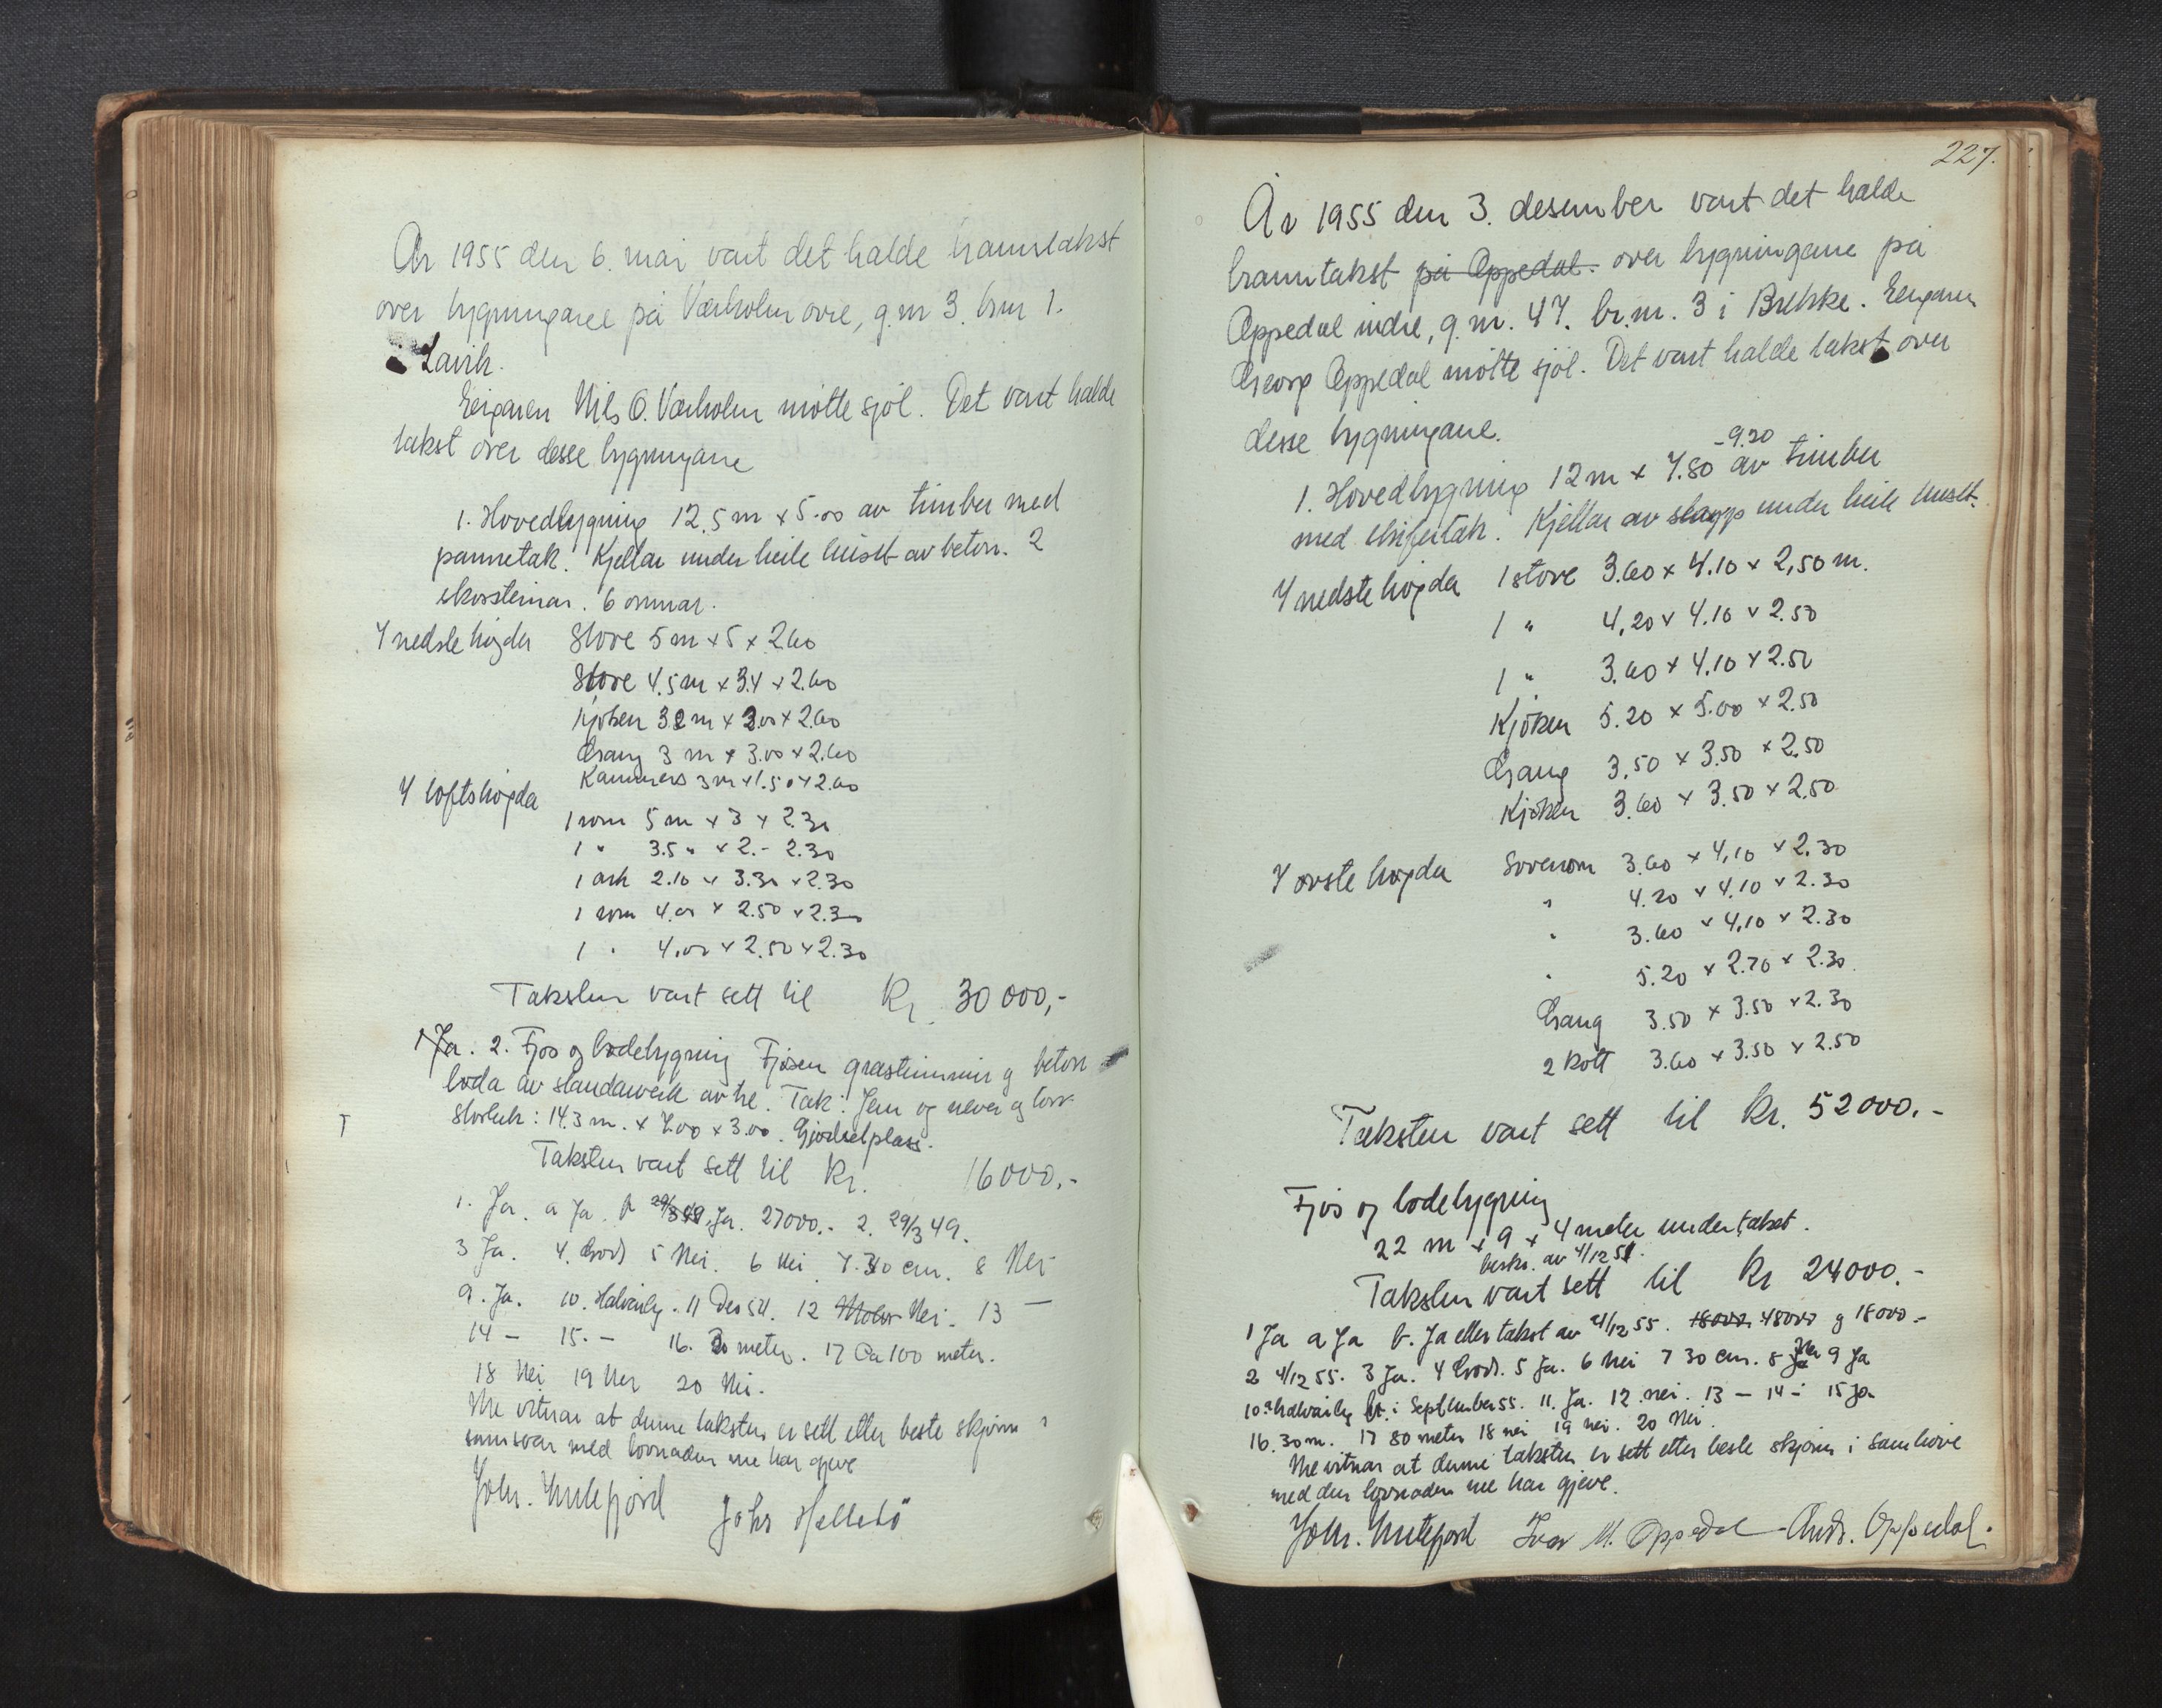 År 1955 den 6. mai vart det halde branntakst
over bygningane på Værholm øvre, g.nr 3. brnr 1.
i Lavik.
Eigaren Nils O. Værholm møtte sjøl. Det vart halde
takst over desse bygningane
1. Hovedbygning 12.5 m x 5.00 av timber med
pannetak. Kjellar under heile huset av beton. 2
skorsteinar. 6 omnar.
I nedste høgda Stove 5 m x 5 x 2.60
Stove 4.5 m x 3.4 x 2.60
Kjøken 3.2 m x 3.00 x 2.60
Gang 3 m x 3.00 x 2.60
Kammers 3 m x 1.50 x 2.60
I loftshøgda
1 rom 5 m x 3 x 2.30
1 " 3.5 " x 2.- 2.30
1 ark 2.10 x 3.30 x 2.30
1 rom 4.00 x 2.50 x 2.30
1 " 4.00 x 2.50 x 2.30
Taksten vart sett til Kr. 30 000,-
1 Ja. 2. Fjos og lødebygning Fjøsen gråsteinmur og beton
løda av standarverk av tre. Tak: Jern og never og torv
Storleik: 14.3 m. x 7.00 x 3.00. Gjødselplass.
Taksten vart sett til Kr. 16000,-
1. Ja. a Ja. b 29/3 49. Ja. 27000.- 2. 29/3 49.
3 Ja. 4. God 5 Nei. 6 Nei. 7. 30 cm. 8 Nei
9. Ja. 10. Halvårleg. 11 Des 54. 12 Nei. 13 —
14 — 15. — 16. 30 meter. 17 Ca 100 meter.
18 Nei 19 Nei 20 Nei.
Me vitnar at denne taksten er sett etter beste skjønn i
samsvar med lovnaden me har gjeve
Johs Hellebö
227.
År 1955 den 3. desember vart det halde
branntakst på Oppedal. over bygningane på
Oppedal indre, g.nr. 47. br.nr. 3 i Brekke. Eigaren
Georg Oppedal møtte sjøl. Det vart halde takst over
desse bygningane.
-9.20
1. Hovedbygning 12 m x 7.80 av timber
med skifertak. Kjellar av støyp under heile huset.
I nedste høgda 1 stove 3.60 x 4.10 x 2,50 m.
1 " 4,20 x 4.10 x 2.50
1 " 3.60 x 4.10 x 2.50
Kjøken 5.20 x 5.00 x 2.50
Gang 3.50 x 3.50 x 2.50
Kjøken 3.60 x 3.50 x 2.50
I øvste høgda Soverom 3.60 x 4,10 x 2.30
" 4.20 x 4.10 x 2.30
" 3.60 x 4,10 x 2.30
" 5.20 x 2.70 x 2.30
Gang 3.50 x 3.50 x 2.30
2 Kott 3.60 x 3.50 x 2.50
Taksten vart sett til Kr. 52000.-
Fjøs og lødebygning
22 m x 9 x 4 meter under takst.
beskr. av 4/12 51.
Taksten vart sett til Kr 24000.-
1 Ja a Ja b. Ja etter takst av 4/12 55. 18000 48000 g 18000.-
2 4/12 55. 3 Ja. 4 God. 5 Ja. 6 Nei 7 30 cm. 8 Nei 9 Ja
10 a halvårleg b. i September 55. 11. Ja. 12. nei. 13 — 14 — 15 Ja
16. 30 m. 17 80 meter 18 nei 19 nei. 20 Nei.
Me vitnar at denne taksten er sett etter beste skjønn i samhøve
med den lovnaden me har gjeve.
Ivar M. Oppedal Andr. Oppedal.